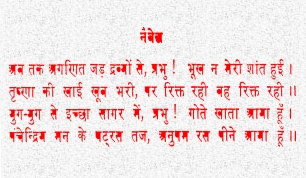 नैवेद्य
अब तक अगणित जड़ द्रव्यों से, प्रभु ! भूख न मेरी शांत हुई ।
तृष्णा की खाई खूब भरी, पर रिक्त रही वह रिक्त रही ।।
युग-युग से इच्छा सागर में, प्रभु ! गोते खाता आया हूँ ।
पंचेन्द्रिय मन के षट्‌रस तज, अनुपम रस पीने आया हूँ ।।